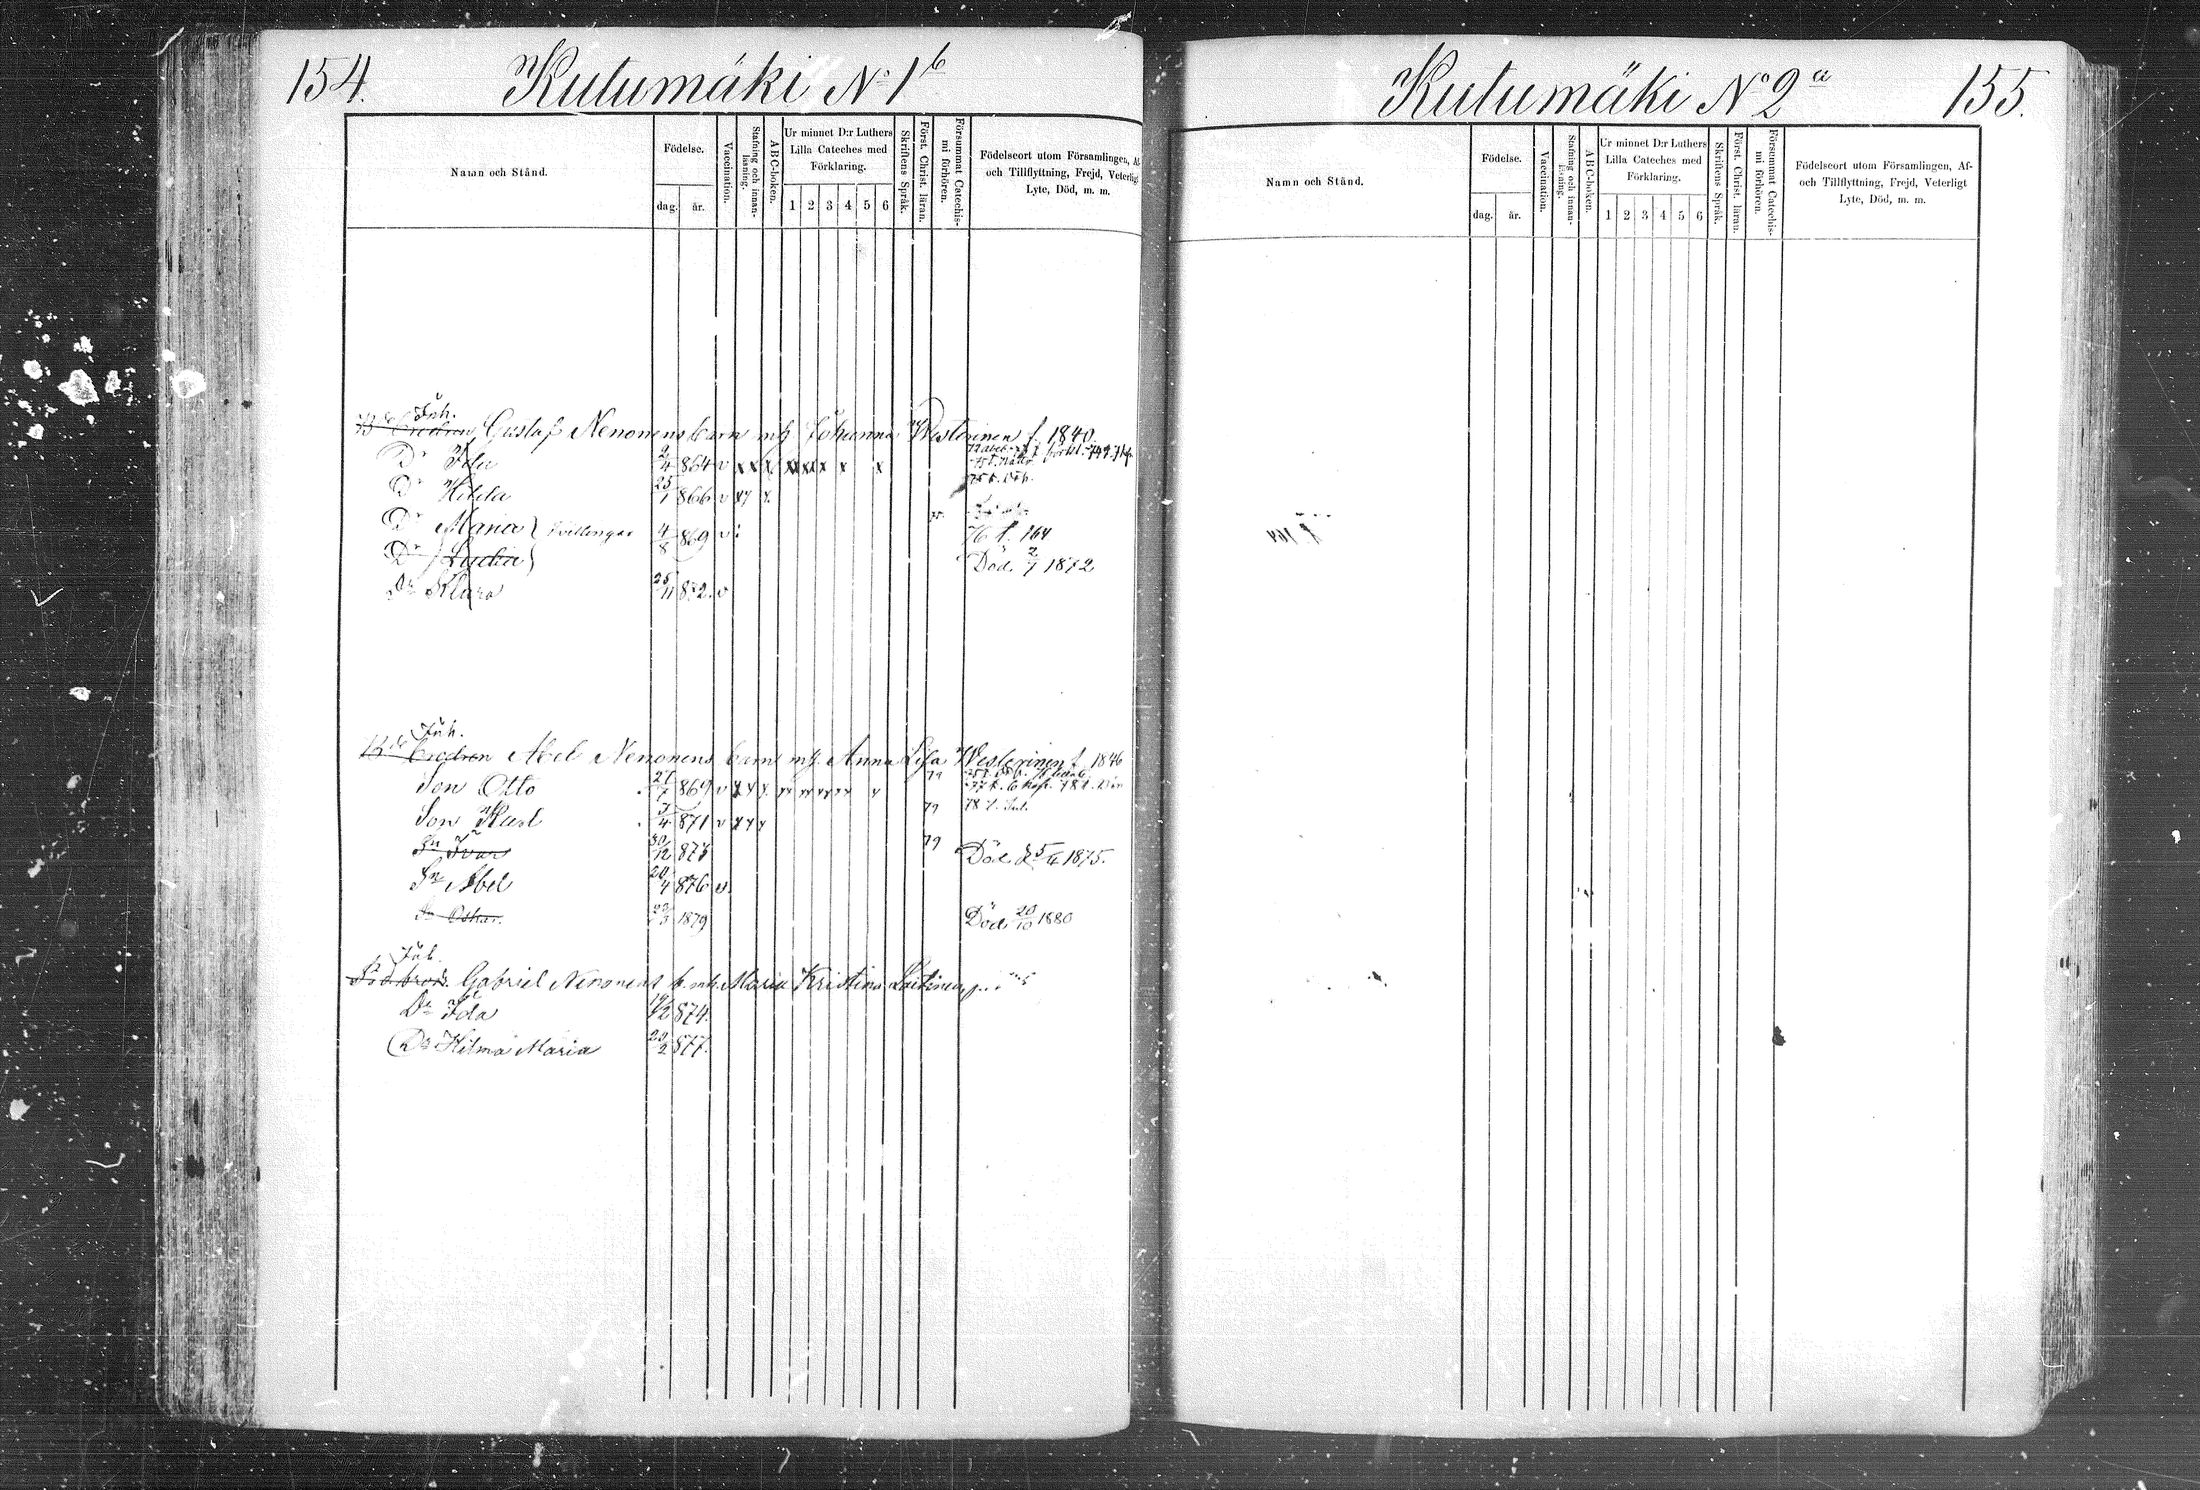 154.
Kutumäki No 1 b
Namn och Stånd.
Födelse.
dag. år.
Vaccination.
Stafning och innanläsning.
ABC-boken.
Ur minnet D:r Luthers
Lilla Cateches med
Förklaring.
1 2 3 4 5 6
Skriftens Språk.
Först. Christ. läran.
Försummat Catechismi förhören.
Födelseort utom Församlingen, Af-
och Tillflyttning, Frejd, Veterligt
Lyte, Död, m. m.
Inh.
Gustaf Nenonens barn mh Johanna Westerinen f. 1840.
Dr Ida 2/4 864 v x x x x x x x x
Dr Hilda 25/1 866 v x x x
Dr Maria } tvillingar 4/8 869 v 76 f. 164
Dr Lydia } Död 2/7 1872
Dr Klara 25/11 872. v
Inh.
Abel Nenonens barn mh. Anna Lisa Westerinen f. 1846
Son Otto 869 v x x x 79
Son Karl 3/4 871 v x x x 79
Sn Ivar 30/12 873 79 Död d. 5/4 1875.
Sn Abel 20/4 876 v
Sn Oskar. 1879 Död 20/10 1880
Inh.
Gabriel Nenonens b. mh. Maria Kristina Laitinen
Dr Ida 19/12 874.
Dr Hilma Maria 877.
Kutumäki No 2 a
155.
Namn och Stånd.
Födelse.
dag. år.
Vaccination.
Stafning och innanläsning.
ABC-boken.
Ur minnet D:r Luthers
Lilla Cateches med
Förklaring.
1 2 3 4 5 6
Skriftens Språk.
Först. Christ. läran.
Försummat Catechismi förhören.
Födelseort utom Församlingen, Af-
och Tillflyttning, Frejd, Veterligt
Lyte, Död, m. m.